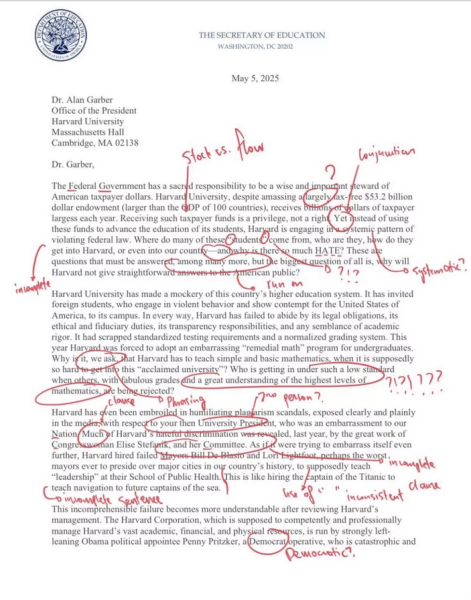 THE SECRETARY OF EDUCATION
WASHINGTON, DC 20202
May 5, 2025
Dr. Alan Garber
Office of the President
Harvard University
Massachusetts Hall
Cambridge, MA 02138
Stock vs. flow
Conjunction
?
Dr. Garber,
The Federal Government has a sacred responsibility to be a wise and important steward of
American taxpayer dollars. Harvard University, despite amassing a largely tax-free $53.2 billion
dollar endowment (larger than the GDP of 100 countries), receives billions of dollars of taxpayer
largess each year. Receiving such taxpayer funds is a privilege, not a right. Yet instead of using
these funds to advance the education of its students, Harvard is engaging in a systemic pattern of
violating federal law. Where do many of these "students" come from, who are they, how do they
get into Harvard, or even into our country—and why is there so much HATE? These are
questions that must be answered, among many more, but the biggest question of all is, why will
Harvard not give straightforward answers to the American public?
systematic?
?!?
incomplete
run on
Harvard University has made a mockery of this country's higher education system. It has invited
foreign students, who engage in violent behavior and show contempt for the United States of
America, to its campus. In every way, Harvard has failed to abide by its legal obligations, its
ethical and fiduciary duties, its transparency responsibilities, and any semblance of academic
rigor. It had scrapped standardized testing requirements and a normalized grading system. This
year Harvard was forced to adopt an embarrassing "remedial math" program for undergraduates.
Why is it, we ask, that Harvard has to teach simple and basic mathematics, when it is supposedly
so hard to get into this "acclaimed university"? Who is getting in under such a low standard
when others, with fabulous grades and a great understanding of the highest levels of
mathematics, are being rejected?
?!?!???
clause
Phrasing
?no person?
Harvard has even been embroiled in humiliating plagiarism scandals, exposed clearly and plainly
in the media, with respect to your then University President, who was an embarrassment to our
Nation. Much of Harvard's hateful discrimination was revealed, last year, by the great work of
Congresswoman Elise Stefanik, and her Committee. As if it were trying to embarrass itself even
further, Harvard hired failed Mayors Bill De Blasio and Lori Lightfoot, perhaps the worst
mayors ever to preside over major cities in our country's history, to supposedly teach
"leadership" at their School of Public Health. This is like hiring the captain of the Titanic to
teach navigation to future captains of the sea.
incomplete
clause
incomplete sentence
use of " " inconsistent
This incomprehensible failure becomes more understandable after reviewing Harvard's
management. The Harvard Corporation, which is supposed to competently and professionally
manage Harvard's vast academic, financial, and physical resources, is run by strongly left-
leaning Obama political appointee Penny Pritzker, a Democrat operative, who is catastrophic and
Democratic?